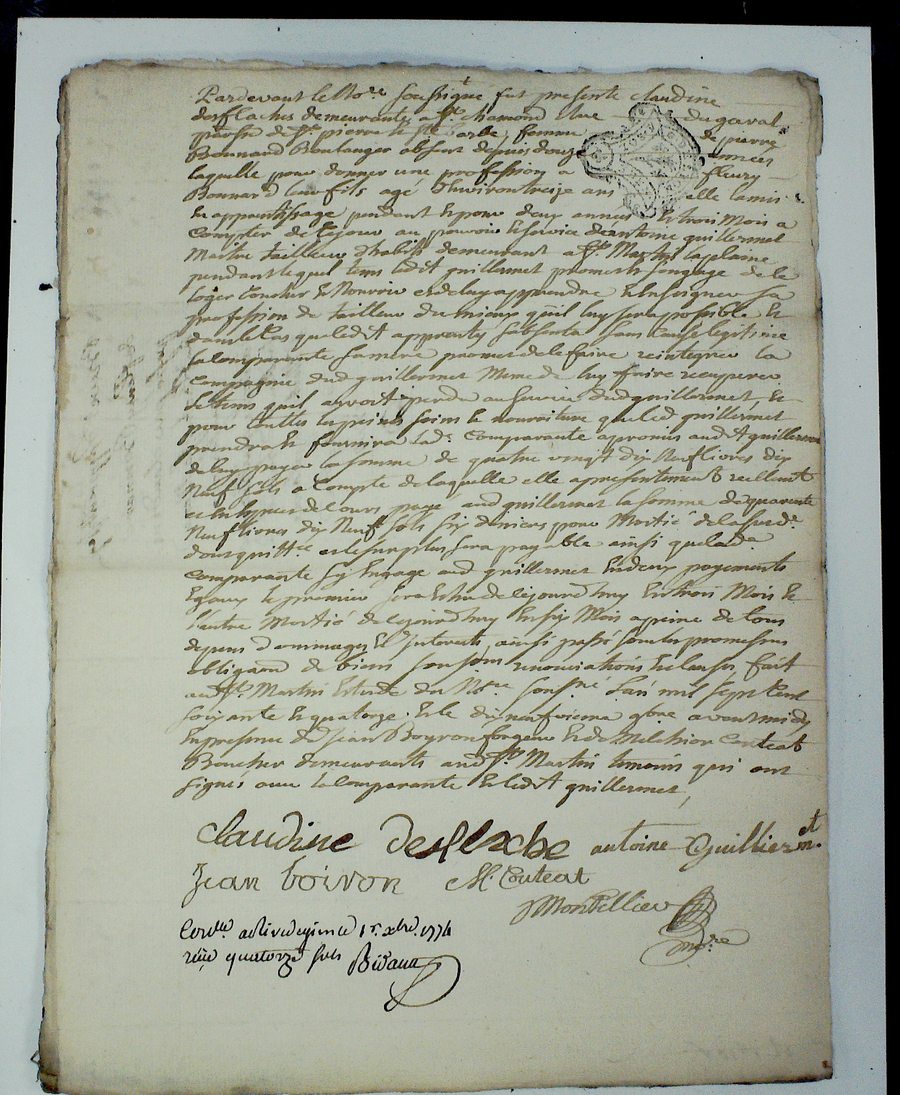 Pardevant le No.re soussigné fut presente claudine
desflaches demeurante a St. chamond Rue du gara
paroisse de St. pierre femme de pierre
Bonnard Boulanger absent depuis douze années
laquelle pour donner une profession a fleury
Bonnard son fils agé d'environ treize ans elle la mis
En apprentissage pendant Et pour deux années Et trois Mois a
Compter de Ce jour au pouvoir Et service de antoine guillermet
Maitre tailleur d'habits demeurant a St. Martin la plaine
pendant lequel tems ledit guillermet promet & s'engage de le
loger Coucher Et Nourrir et de luy apprendre Et Enseigner sa
profession de tailleur du mieux quil luy sera possible Et
dans le Cas que ledit apprenty s'absenta sans Cause legitime
la Comparante sa mere promet de le faire reintegrer la
Compagnie dud. guillermet Meme de luy faire recuperer
le tems quil auroit perdu au service dud. guillermet, Et
pour touttes les peines soins Et nouriture que led. guillermet
prendra Et fournira lad. Comparante a promis aud.t guillermet
de luy payer la somme de quatre vingt dix Neuf livres dix
Neuf sols a Compte de laquelle elle a presentement reellement
et En Especes de Cours payé aud. guillermet la somme de quarante
Neuf livres dix Neuf sols six deniers pour Moitié de la sus d.
dont quittce et le surplus sera payable ainsi que lad.
Comparante sy Engage aud. guillermet En deux payements
Egaux le premier sera Echu de Ce jourd'huy En trois Mois Et
l'autre Moitié de Ce jourd'huy En six Mois a peine de tous
depens dommages Et Interets, ainsi passé sous les promesses
obligaons de biens soumons renonciations Et Clauses, fait
aud. St. Martin Etude du No.re soussné l'an mil sept Cent
soixante Et quatorze. Et le dix neufvieme 9bre avant midy
En presence de Jean Boyron forgeur Et de Melchior Couteat
Boucher demeurants aud. St. Martin temoins qui ont
signés avec la Comparante Et led.t guillermet,
claudine desflache antoine Guilliermet
Jean boiron M. Couteat
Montellier
No.re
Con.lle a rivedegier le 1.r xbre 1774
reçu quatorze sols Bivaux